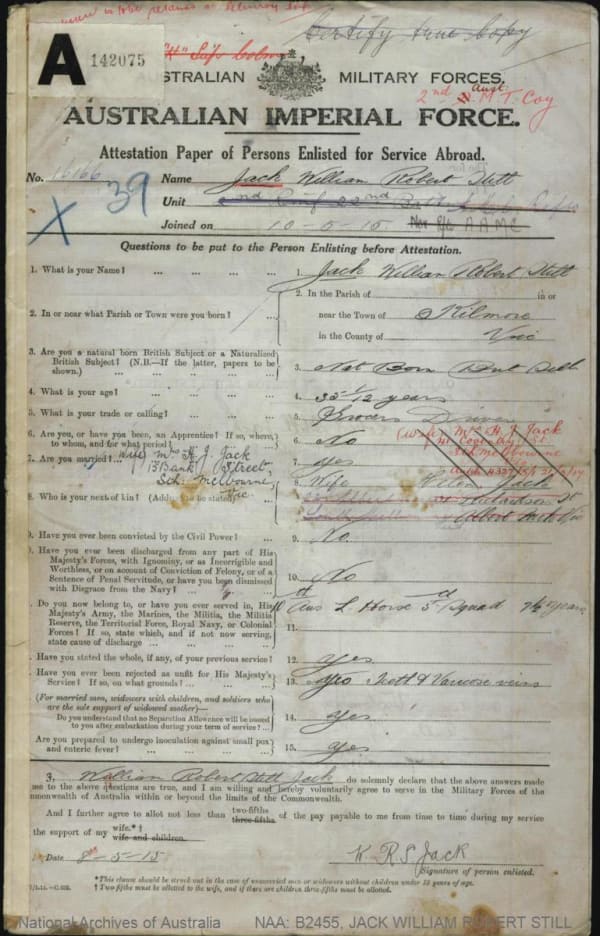 Certify true Copy
A 142075
AUSTRALIAN MILITARY FORCES.
2nd Aust. M.T. Coy
AUSTRALIAN IMPERIAL FORCE.
Attestation Paper of Persons Enlisted for Service Abroad.
No. 16166 Name Jack William Robert Still
39 Unit
X Joined on 10-5-15 A.A.M.C.
Questions to be put to the Person Enlisting before Attestation.
1. What is your Name? ... 1. Jack William Robert Still
2. In or near what Parish or Town were you born? ... 2. In the Parish of in or
near the Town of Kilmore
in the County of Vic
3. Are you a natural born British Subject or a Naturalized
British Subject? (N.B.—If the latter, papers to be
shown.) ... 3. Nat Born Brit
4. What is your age? ... 4. 35 1/12 years
5. What is your trade or calling? ... 5. Grocers Driver
6. Are you, or have you been, an Apprentice? If so, where,
to whom, and for what period? 6. No
(Wife) Mrs H. J. Jack
7. Are you married? ... 7. Yes
Wife Mrs H. J. Jack
13 Bank Street
Sth Melbourne, Vic
Sth Melbourne
8. Who is your next of kin? (Address to be stated) 8. Wife Helen Jack
Richardson St
Albert Park Vic
9. Have you ever been convicted by the Civil Power? ... 9. No.
10. Have you ever been discharged from any part of His
Majesty's Forces, with Ignominy, or as Incorrigible and
Worthless, or on account of Conviction of Felony, or of a
Sentence of Penal Servitude, or have you been dismissed
with Disgrace from the Navy? ... 10. No
Do you now belong to, or have you ever served in, His
Majesty's Army, the Marines, the Militia, the Militia
Reserve, the Territorial Force, Royal Navy, or Colonial
Forces? If so, state which, and if not now serving,
state cause of discharge ... 11. Aus L. Horse Squad years
. Have you stated the whole, if any, of your previous service? 12. Yes
. Have you ever been rejected as unfit for His Majesty's
Service? If so, on what grounds? ... 13. Yes Teeth & Varicose veins
(For married men, widowers with children, and soldiers who
are the sole support of widowed mother)—
Do you understand that no Separation Allowance will be issued
to you after embarkation during your term of service? ... 14. Yes
Are you prepared to undergo inoculation against small pox
and enteric fever? ... 15. Yes
I, William Robert Still Jack do solemnly declare that the above answers made
me to the above questions are true, and I am willing and hereby voluntarily agree to serve in the Military Forces of the
mmonwealth of Australia within or beyond the limits of the Commonwealth.
And I further agree to allot not less than two-fifths three-fifths of the pay payable to me from time to time during my service
the support of my wife.*† wife and children.
Date 8-5-15 W. R. S. Jack
Signature of person enlisted.
*This clause should be struck out in the case of unmarried men or widowers without children under 18 years of age.
†Two fifths must be allotted to the wife, and if there are children three fifths must be allotted.
National Archives of Australia NAA: B2455, JACK WILLIAM ROBERT STILL